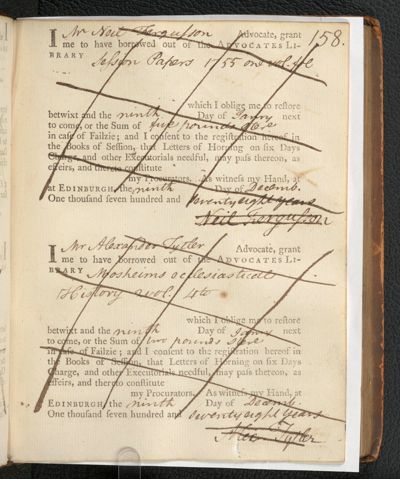 158.
I Mr Neil Fergusson Advocate, grant
me to have borrowed out of the ADVOCATES LI-
BRARY Session Papers 1755 one vol. fol.
which I oblige me to restore
betwixt and the ninth Day of Janry next
to come, or the Sum of five pounds Ster
in case of Failzie; and I consent to the registration hereof in
the Books of Session, that Letters of Horning on six Days
Charge, and other Executorials needful, may pass thereon, as
effeirs, and thereto constitute
my Procurators. As witness my Hand, at
at EDINBURGH, the ninth Day of Decemb.
One thousand seven hundred and seventy eight years
Neil Fergusson
I Mr Alexander Tytler Advocate, grant
me to have borrowed out of the ADVOCATES LI-
BRARY Mosheims ecclesiastical
History vol. 4to
which I oblige me to restore
betwixt and the ninth Day of Janry next
to come, or the Sum of two pounds Ster
in case of Failzie; and I consent to the registration hereof in
the Books of Session, that Letters of Horning on six Days
Charge, and other Executorials needful, may pass thereon, as
effeirs, and thereto constitute
my Procurators. As witness my Hand, at
EDINBURGH, the ninth Day of Decemb.
One thousand seven hundred and seventy eight years
Alex Tytler